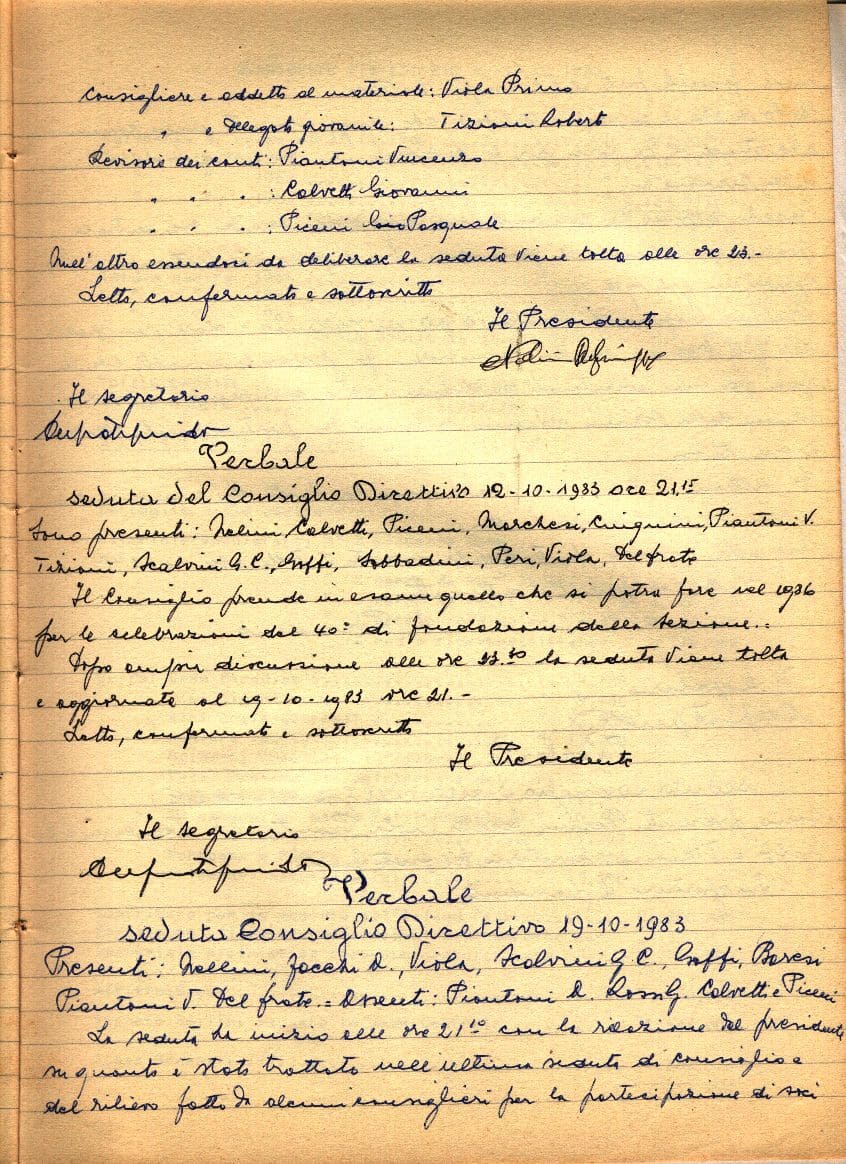 Consigliere e addetto al materiale: Viola Primo
" e delegato giovanile: Tizioni Robert
Revisori dei conti: Piantoni Vincenzo
" " " : Calvetti Giovanni
" " " : Piceni Pasquale
Null'altro essendoci da deliberare la seduta viene tolta alle ore 23.-
Letto, confermato e sottoscritto
Il Presidente
Il segretario
Verbale
seduta del Consiglio Direttivo 12-10-1983 ore 21,15
Sono presenti: Nelini, Calvetti, Piceni, Marchesi, Cinquini, Piantoni V.
Tizioni, Scalvini G.C., Goffi, Sabbadini, Peri, Viola, Del frate
Il Consiglio prende in esame quello che si potrà fare nel 1986
per le celebrazioni del 40° di fondazione della Sezione.=
Dopo ampia discussione alle ore 23.30 la seduta viene tolta
e aggiornata al 19-10-1983 ore 21.-
Letto, confermato e sottoscritto
Il Presidente
Il segretario
Verbale
seduta Consiglio Direttivo 19-10-1983
Presenti: Nellini, Zocchi D., Viola, Scalvini G C., Goffi, Baresi
Piantoni V. Del frate.= Assenti: Piantoni D. Rossi G. Calvetti e Piceni
La seduta ha inizio alle ore 21¹⁰ con la relazione del presidente
su quanto è stato trattato nell'ultima seduta di consiglio e
del rilievo fatto da alcuni consiglieri per la partecipazione di soci